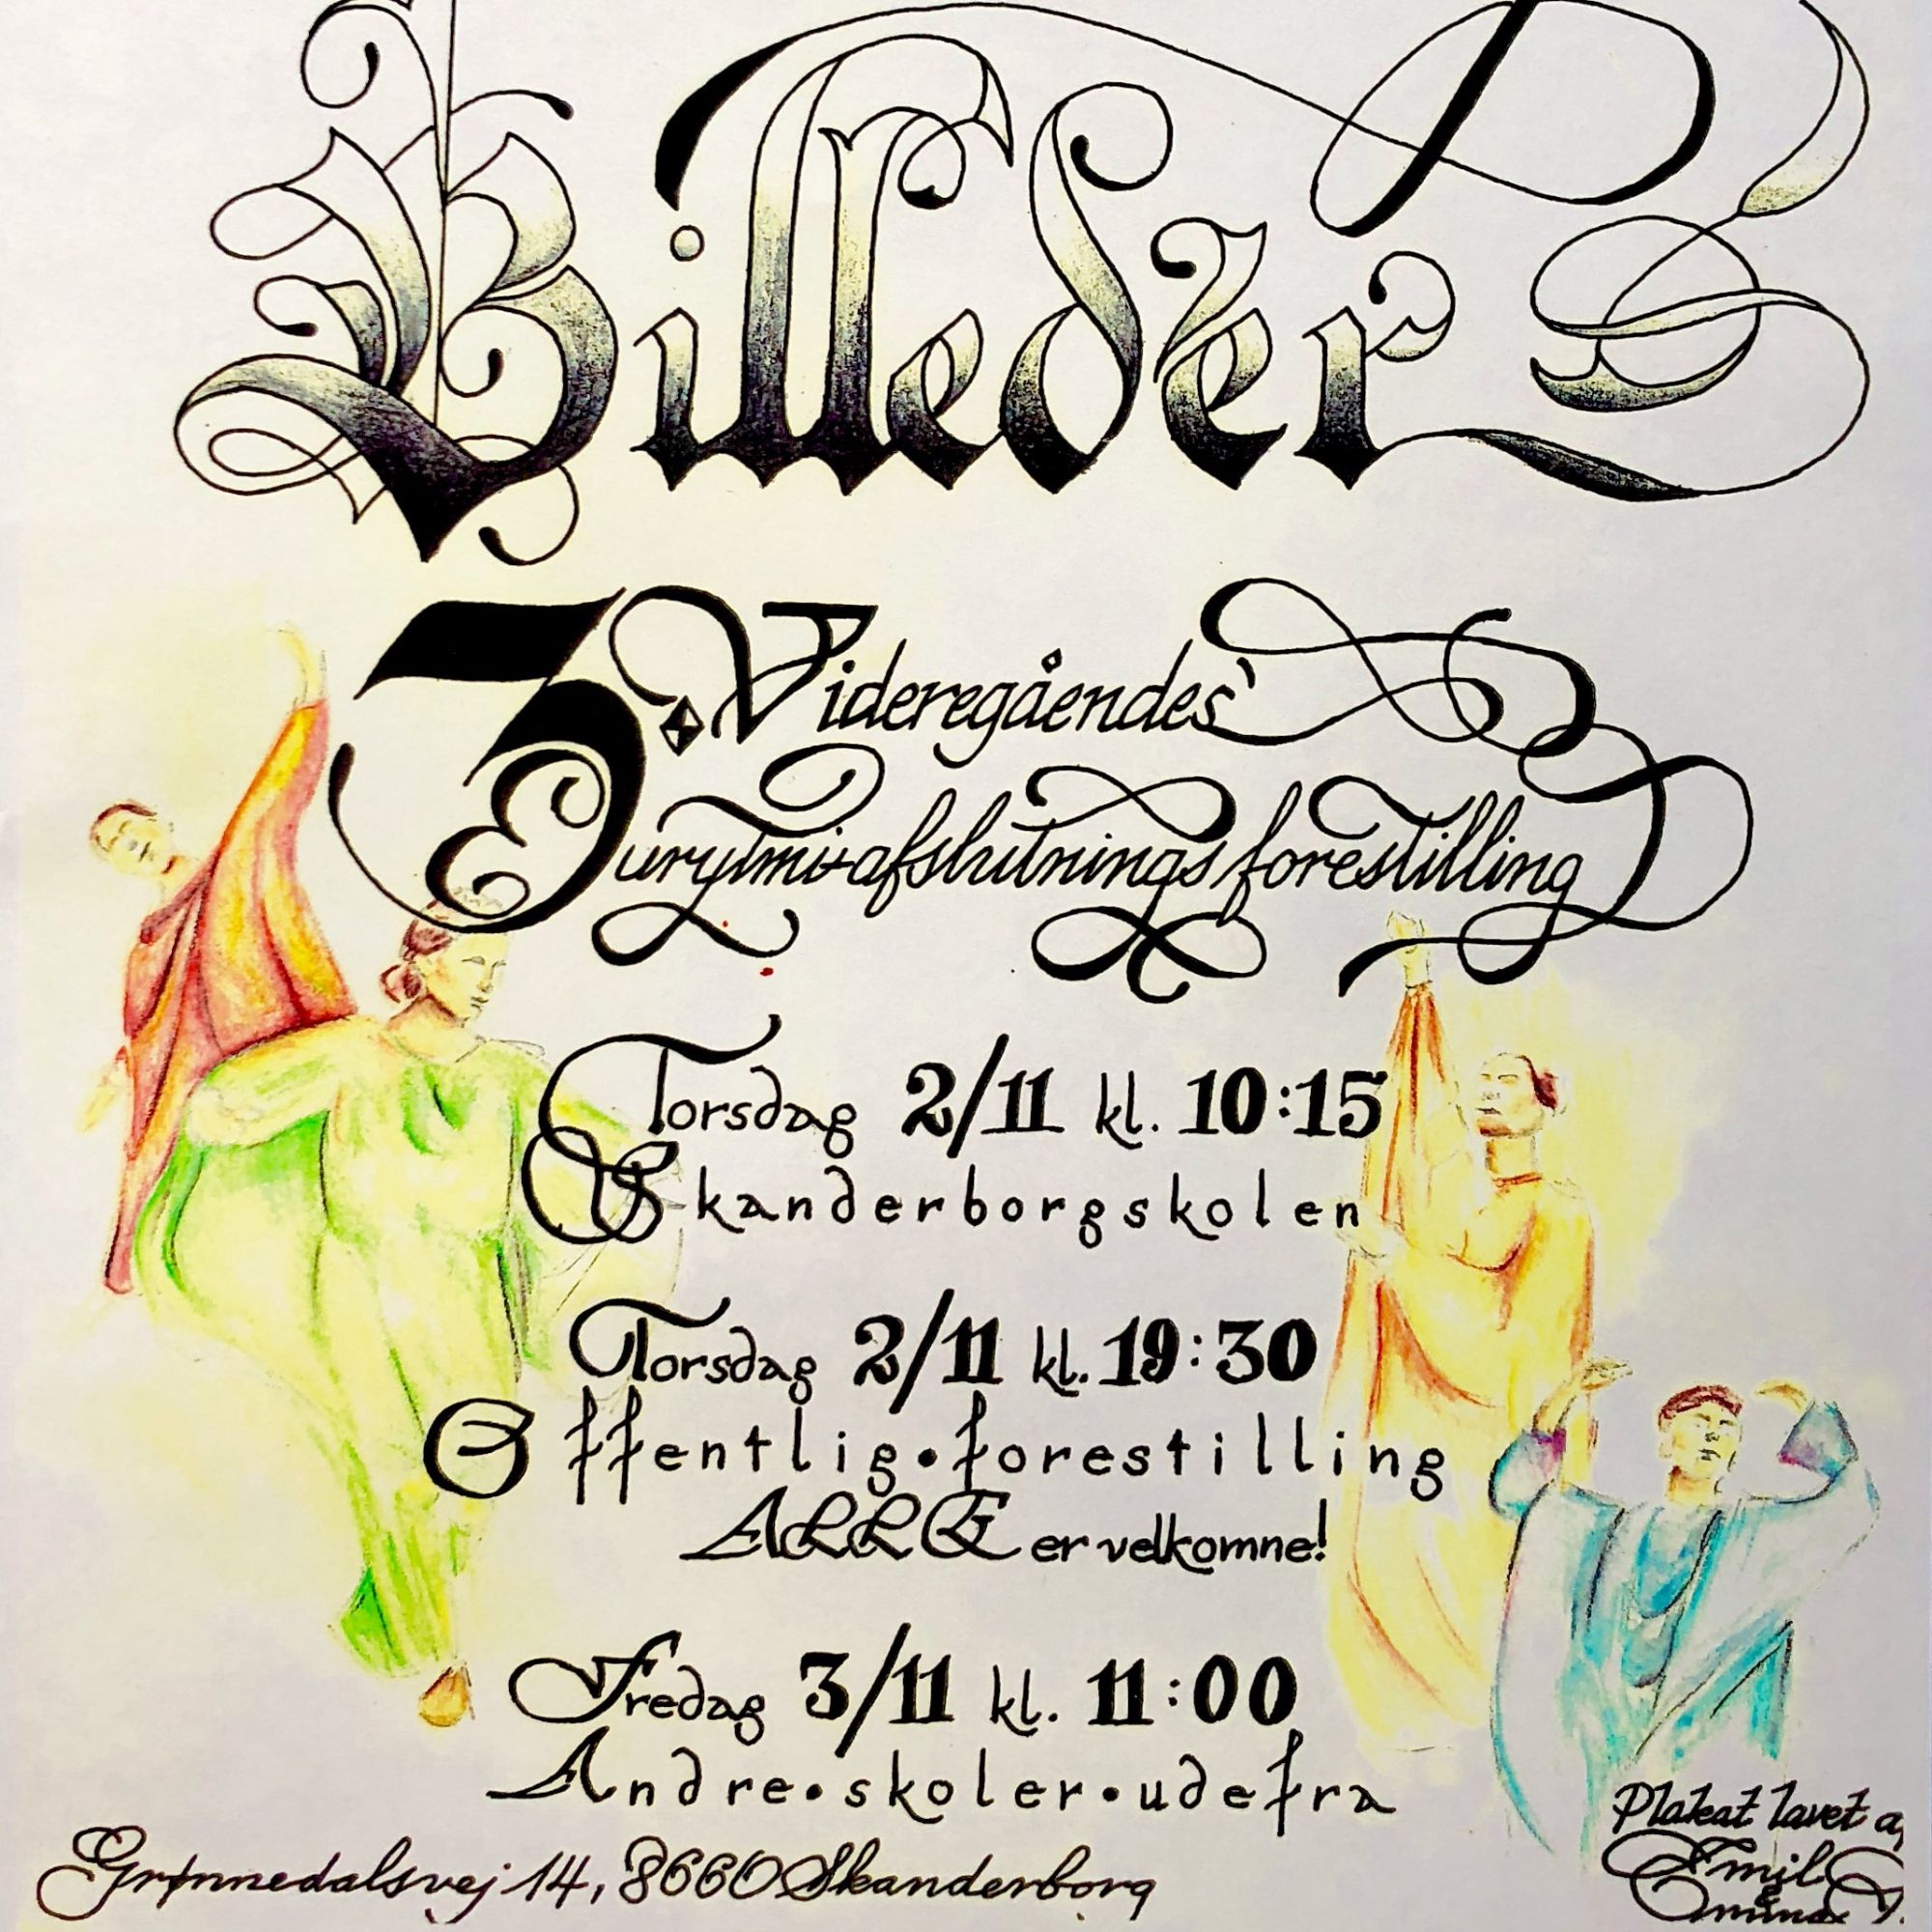 Billeder
3. Videregåendes'
Eurytmi-afslutningsforestilling
Torsdag 2/11 kl. 10:15
Skanderborgskolen
Torsdag 2/11 kl. 19:30
Offentlig•forestilling
ALLE er velkomne!
Fredag 3/11 kl. 11:00
Andre•skoler•udefra
Grønnedalsvej 14, 8660 Skanderborg
Plakat lavet a
Emil
&